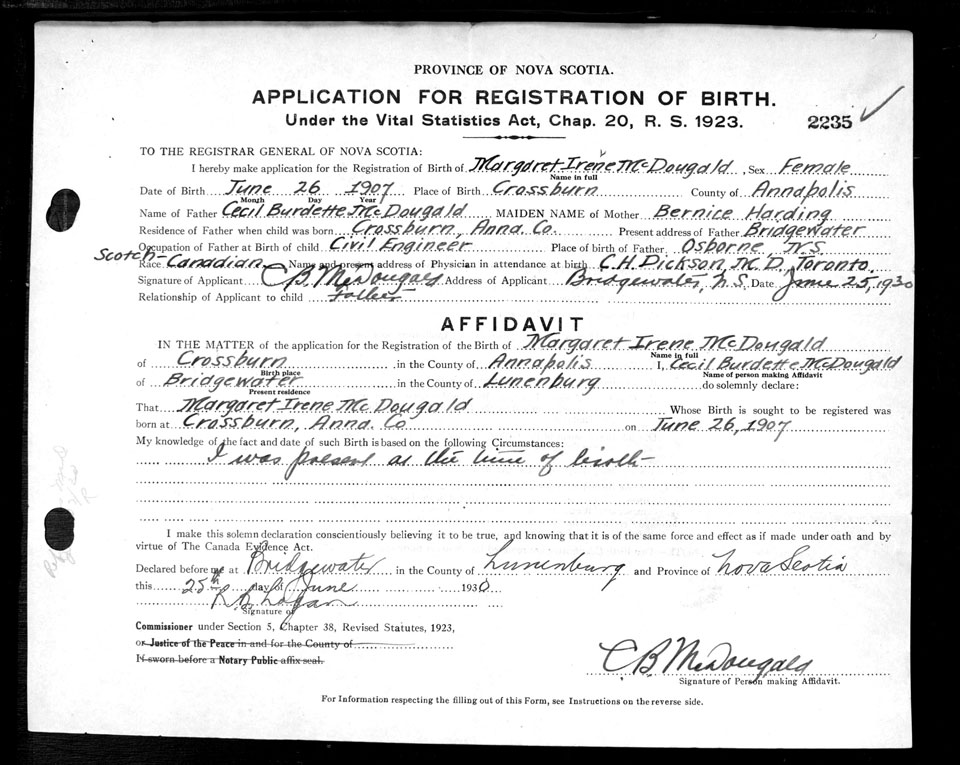 PROVINCE OF NOVA SCOTIA.
APPLICATION FOR REGISTRATION OF BIRTH.
Under the Vital Statistics Act, Chap. 20, R. S. 1923. 2235
TO THE REGISTRAR GENERAL OF NOVA SCOTIA:
I hereby make application for the Registration of Birth of Margaret Irene McDougald, Sex Female
Name in full
Date of Birth June 26 1907 Place of Birth Crossburn County of Annapolis
Month Day Year
Name of Father Cecil Burdette McDougald MAIDEN NAME of Mother Bernice Harding
Residence of Father when child was born Crossburn, Anna. Co. Present address of Father Bridgewater
Occupation of Father at Birth of child Civil Engineer Place of birth of Father Osborne N.S.
Scotch-
Race Canadian Name and present address of Physician in attendance at birth C.H. Dickson, M.D, Toronto.
Signature of Applicant C B. McDougald Address of Applicant Bridgewater, N.S. Date June 25, 1930
Relationship of Applicant to child Father
AFFIDAVIT
IN THE MATTER of the application for the Registration of the Birth of Margaret Irene McDougald
Name in full
of Crossburn in the County of Annapolis I, Cecil Burdette McDougald
Birth place Name of person making Affidavit
of Bridgewater in the County of Lunenburg do solemnly declare:
Present residence
That Margaret Irene McDougald Whose Birth is sought to be registered was
born at Crossburn, Anna. Co on June 26, 1907
My knowledge of the fact and date of such Birth is based on the following Circumstances:
I was present at the time of birth
I make this solemn declaration conscientiously believing it to be true, and knowing that it is of the same force and effect as if made under oath and by
virtue of The Canada Evidence Act.
Declared before me at Bridgewater in the County of Lunenburg and Province of Nova Scotia
this 25th day of June 1930
Logan
Signature of
Commissioner under Section 5, Chapter 38, Revised Statutes, 1923,
or Justice of the Peace in and for the County of
If sworn before a Notary Public affix seal.
C B McDougald
Signature of Person making Affidavit.
For Information respecting the filling out of this Form, see Instructions on the reverse side.